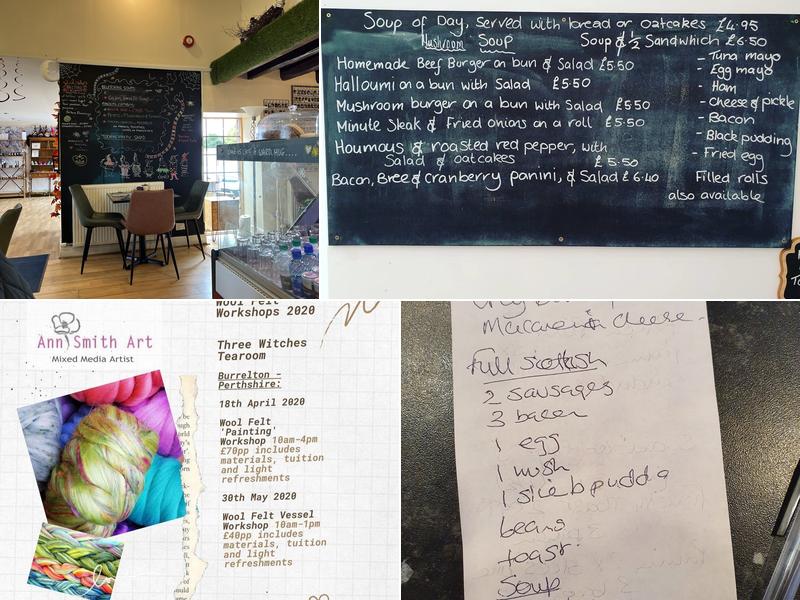 Soup of Day, served with bread or oatcakes £4.95
Mushroom Soup
Soup & ½ Sandwhich £6.50
Homemade Beef Burger on bun & Salad £5.50
Halloumi on a bun with Salad £5.50
Mushroom burger on a bun with Salad £5.50
Minute Steak & Fried onions on a roll £5.50
Houmous & roasted red pepper, with
Salad & oatcakes £5.50
Bacon, Bree & Cranberry panini, & Salad £6.40
- Tuna mayo
- Egg mayo
- Ham
- Cheese & pickle
- Bacon
- Black pudding
- Fried egg
Filled rolls
also available
Ann Smith Art
Mixed Media Artist
Wool Felt
Workshops 2020
Three Witches
Tearoom
Burrelton -
Perthshire:
18th April 2020
Wool Felt
'Painting'
Workshop 10am-4pm
£70pp includes
materials, tuition
and light
refreshments
30th May 2020
Wool Felt Vessel
Workshop 10am-1pm
£40pp includes
materials, tuition
and light
refreshments
Macaroni & cheese.
Full scottish
2 sausages
3 bacon
1 egg
1 mush
1 slice b pudd
beans
toast.
Soup